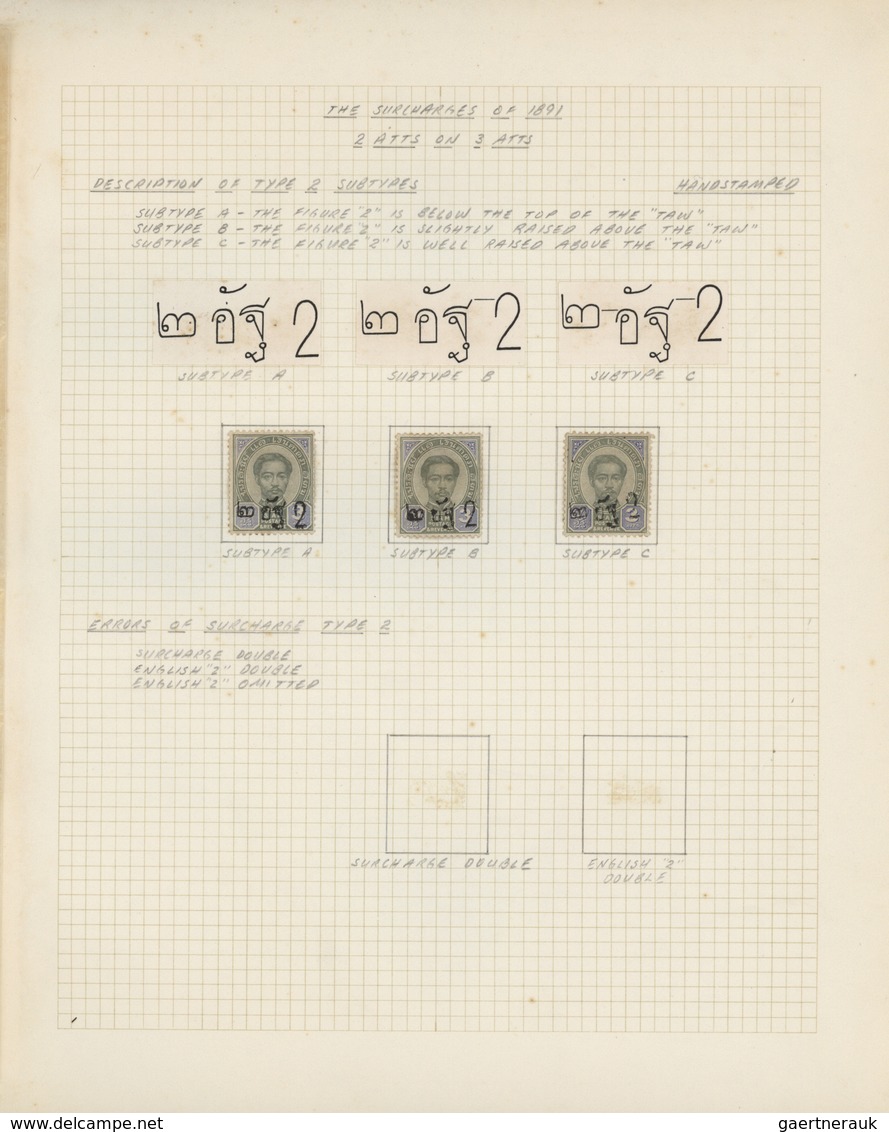 THE SURCHARGES OF 1891
2 ATTS ON 3 ATTS
DESCRIPTION OF TYPE 2 SUBTYPES HANDSTAMPED
SUBTYPE A - THE FIGURE "2" IS BELOW THE TOP OF THE "TAW"
SUBTYPE B - THE FIGURE "2" IS SLIGHTLY RAISED ABOVE THE "TAW"
SUBTYPE C - THE FIGURE "2" IS WELL RAISED ABOVE THE "TAW"
๒ อัฐ 2 ๒ อัฐ 2 ๒ อัฐ 2
SUBTYPE A SUBTYPE B SUBTYPE C
๒ อัฐ 2 ๒ อัฐ 2 ๒ อัฐ 2
SUBTYPE A SUBTYPE B SUBTYPE C
ERRORS OF SURCHARGE TYPE 2
SURCHARGE DOUBLE
ENGLISH "2" DOUBLE
ENGLISH "2" OMITTED
SURCHARGE DOUBLE ENGLISH "2"
DOUBLE
www.delcampe.net
gaertnerauk